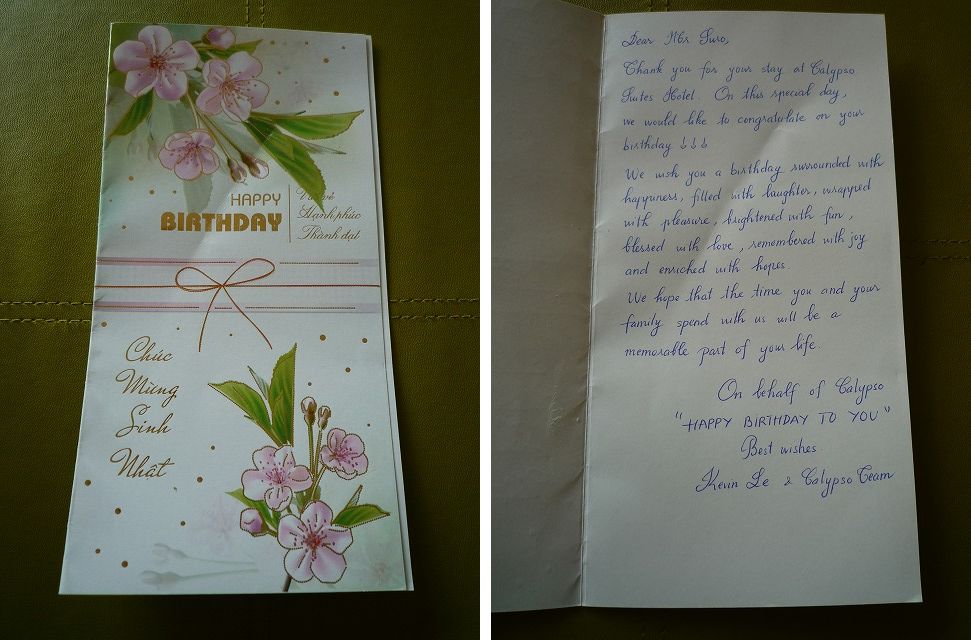 HAPPY
BIRTHDAY
Vui vẻ
Hạnh phúc
Thành đạt
Chúc
Mừng
Sinh
Nhật
Dear Mrs Suro,
Thank you for your stay at Calypso
Suites Hotel. On this special day,
we would like to congratulate on your
birthday !!!
We wish you a birthday surrounded with
happiness, filled with laughter, wrapped
with pleasure, brightened with fun,
blessed with love, remembered with joy
and enriched with hopes.
We hope that the time you and your
family spend with us will be a
memorable part of your life.
On behalf of Calypso
"HAPPY BIRTHDAY TO YOU"
Best wishes
Kevin Le & Calypso Team